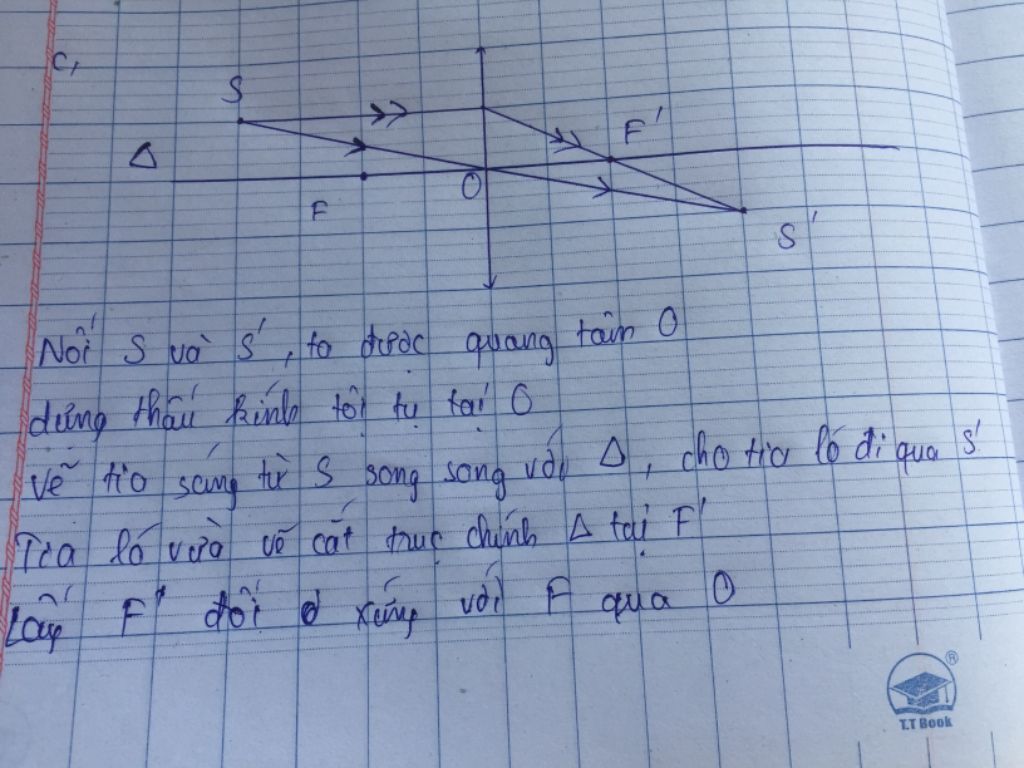 c,
S
Δ
F'
F
O
S'
Nối S và S', ta được quang tâm O
dựng thấu kính tội tụ tại O
vẽ tia sáng từ S song song với Δ, cho tia ló đi qua S'
Tia ló vừa vẽ cắt trục chính Δ tại F'
Lấy F' đối xứng với F qua O
®
T.T Book